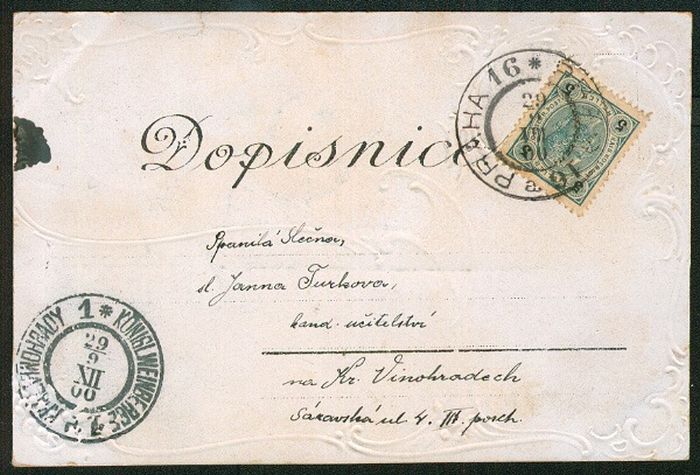 Dopisnice
PRAHA 16 *
29
5
5
Spanilá Slečna,
sl. Janna Turkova,
kand. učitelství
na Kr. Vinohradech
Sázavská ul. 4. III. posch.
1 * KÖNIGL. WEINBERGE
KRÁL. VINOHRADY
29
9
XII
00